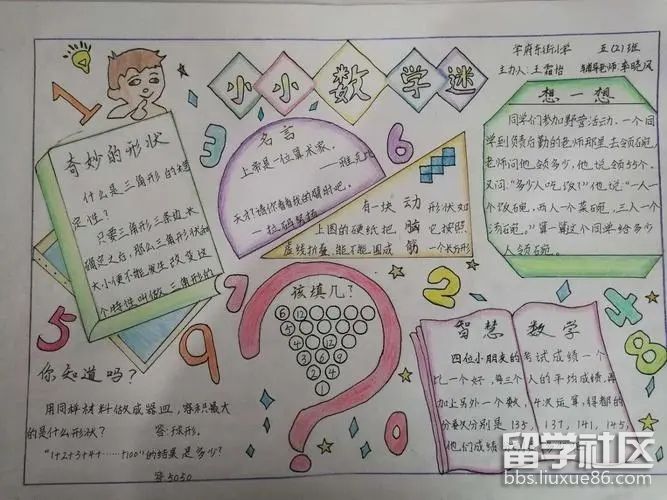 小小数学迷
学府东街小学 五(2)班
主办人:王霜怡 辅导老师:李晓风
1
3
6
奇妙的形状
什么是三角形的稳
定性?
只要三角形三条边长
确定之后,那么三角形状和
大小便不能发生改变这
个特性叫做三角形的
名言
上帝是一位算术家.
——雅克比
天才?请你看看我的臂肘吧.
——拉码努扬
动脑筋
有一块 形状如
上图的硬纸把 它按照
虚线折叠,能不能围成 一个长方形
想一想
同学们参加野营活动.一个同
学到负责后勤的老师那里去领碗.
老师问他领多少,他说领55个.
又问:"多少人吃饭?"他说:"一人一
个饭碗,两人一个菜碗,三人一个
汤碗."算一算这个同学给多少
人领碗.
5
9
7
2
4
8
该填几?
6 12
5
4
2 4
3 6 9
你知道吗?
用同样材料做成器皿,容积最大
的是什么形状? 答:球形.
"1+2+3+4+……+100"的结果是多少?
答5050
智慧数学
四位小朋友的考试成绩一个
比一个好,每三个人的平均成绩,再
加上另外一个数,4次运算,得都的
分数次分别是135,137,141,145,
他们成绩
留学社区
bbs.liuxue86.com